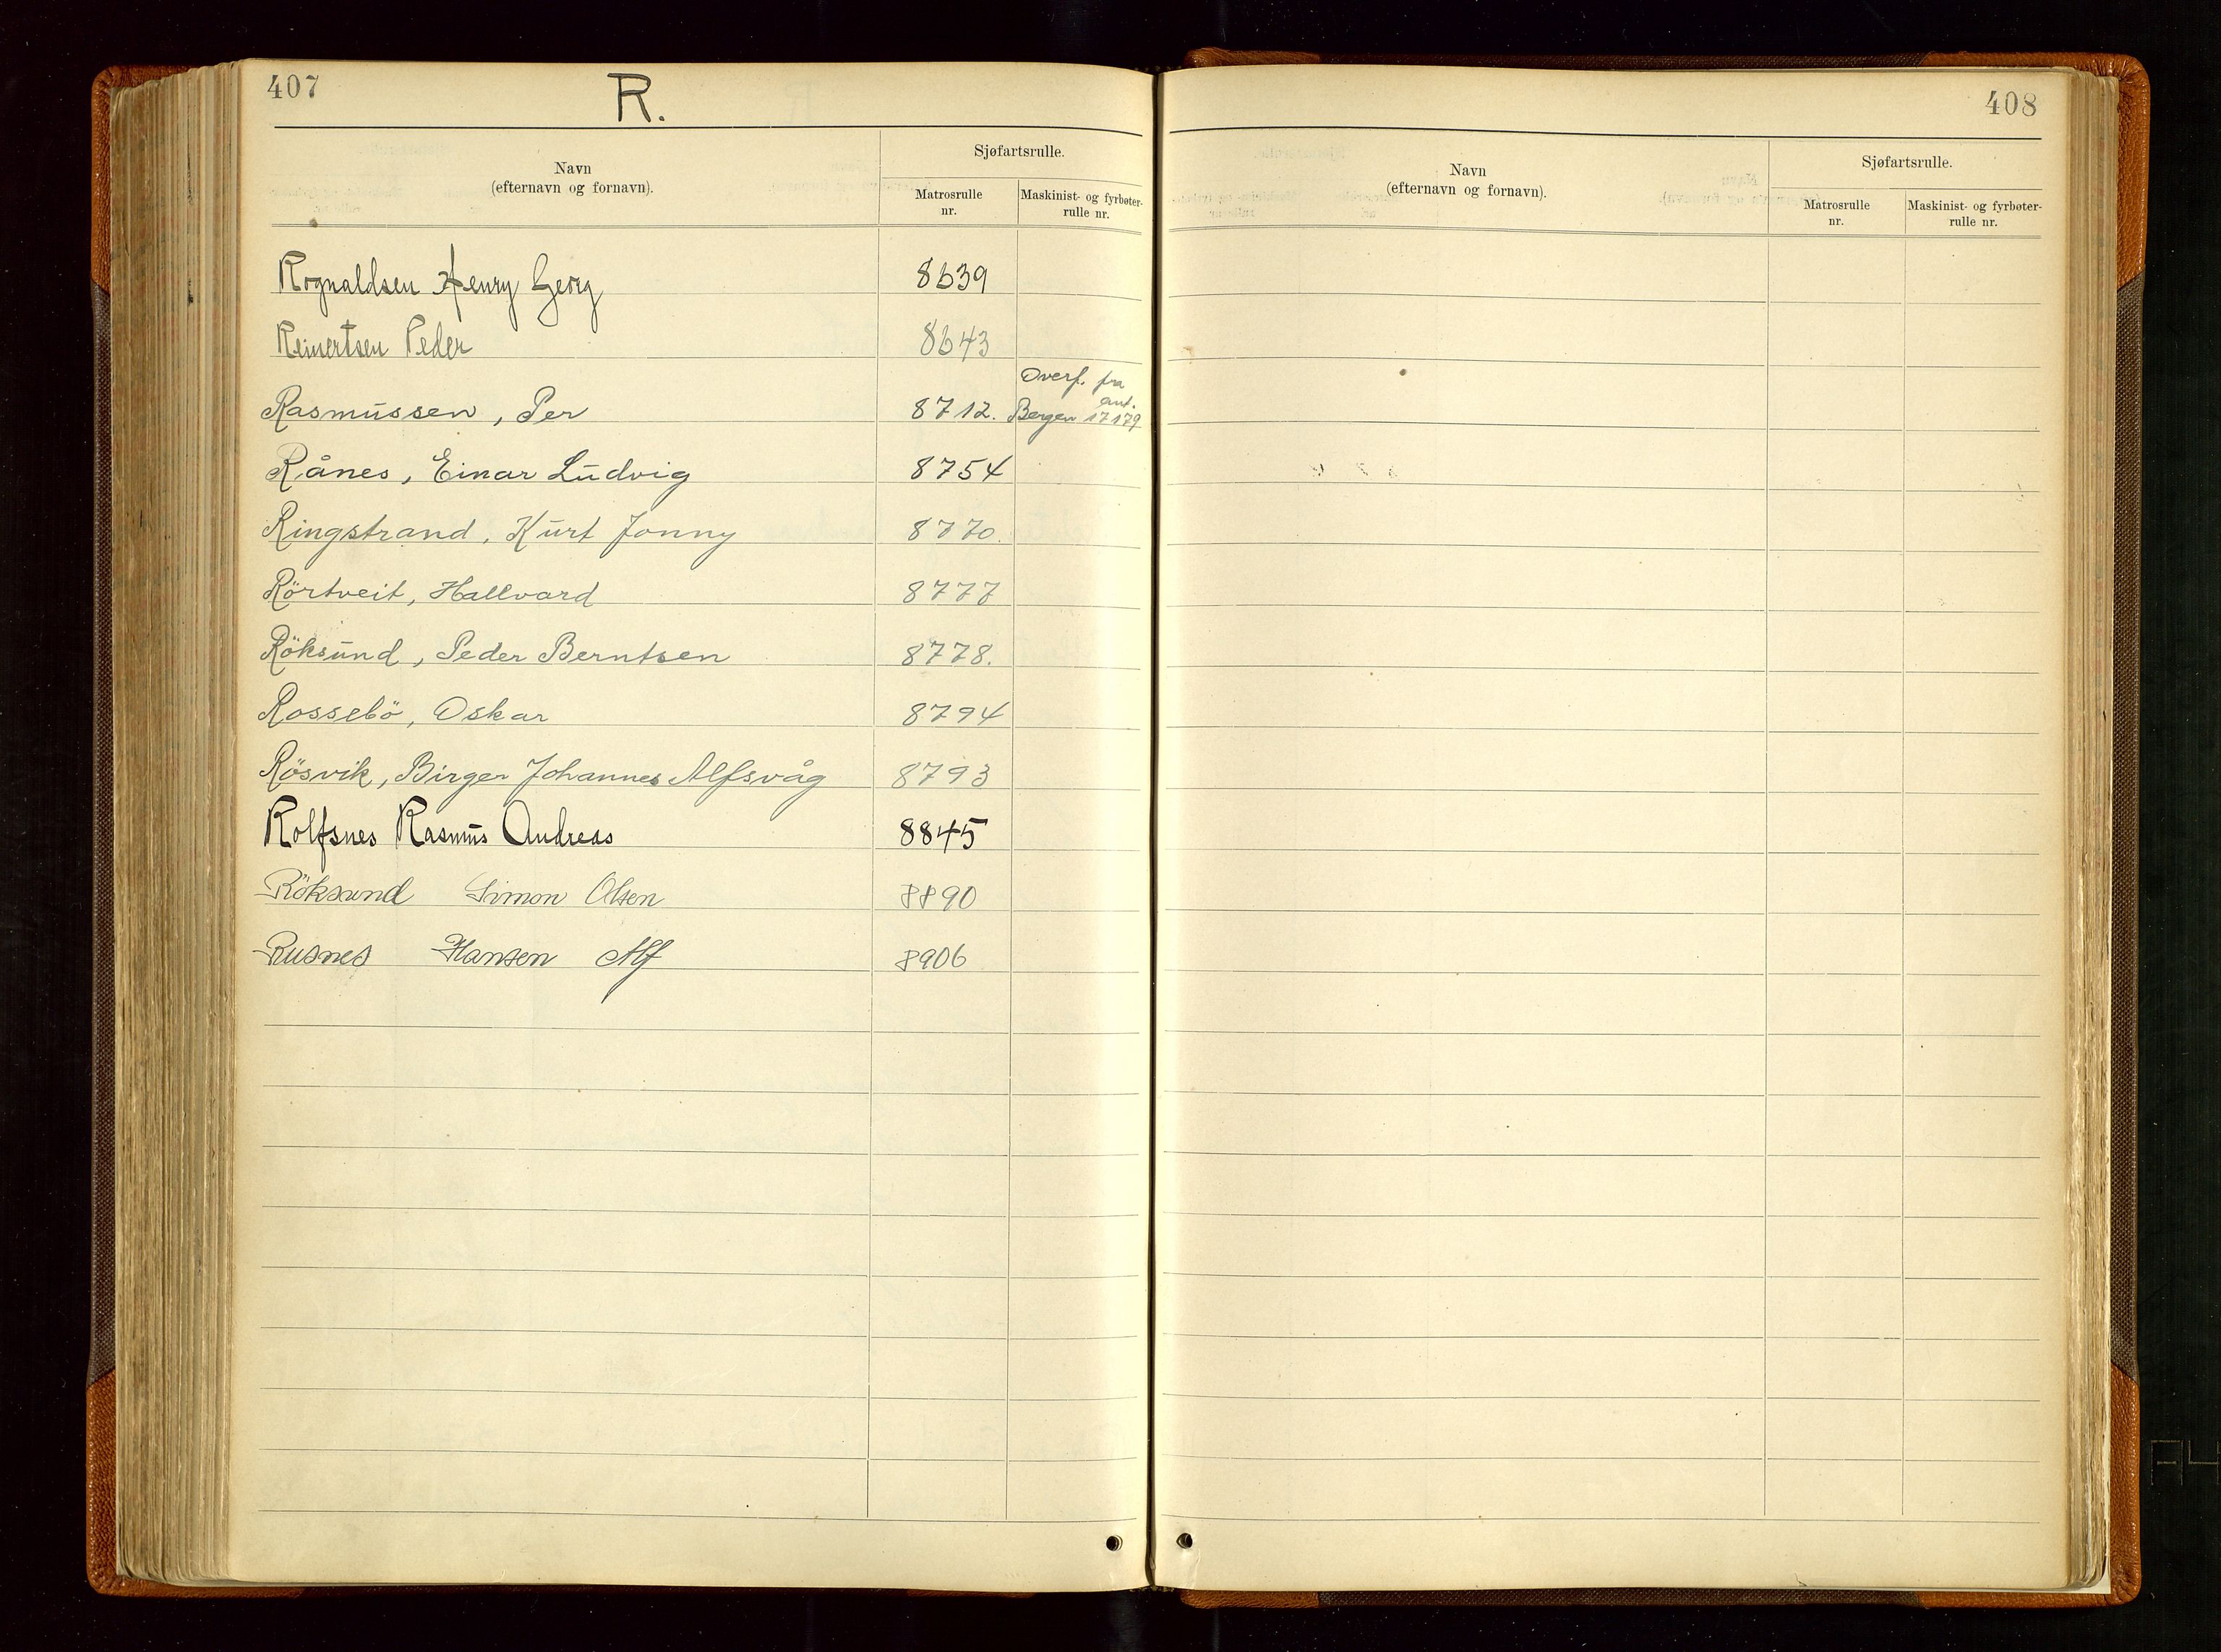 407
R.
Navn
(efternavn og fornavn).
Sjøfartsrulle.
Matrosrulle
nr.
Maskinist- og fyrbøter-
rulle nr.
Rognaldsen Henry Georg 8639
Reinertsen Peder 8643
Rasmussen, Per 8712. Overf. fra
Bergen ant. 17179
Rånes, Einar Ludvig 8754
Ringstrand, Kurt Jonny 8770.
Rörtveit, Hallvard 8777
Röksund, Peder Berntsen 8778.
Rossebö, Oskar 8794
Rösvik, Birger Johannes Alfsvåg 8793
Rolfsnes Rasmus Andreas 8845
Röksund Simon Olsen 8890
Rusnes Hansen Alf 8906
408
Navn
(efternavn og fornavn).
Sjøfartsrulle.
Matrosrulle
nr.
Maskinist- og fyrbøter-
rulle nr.